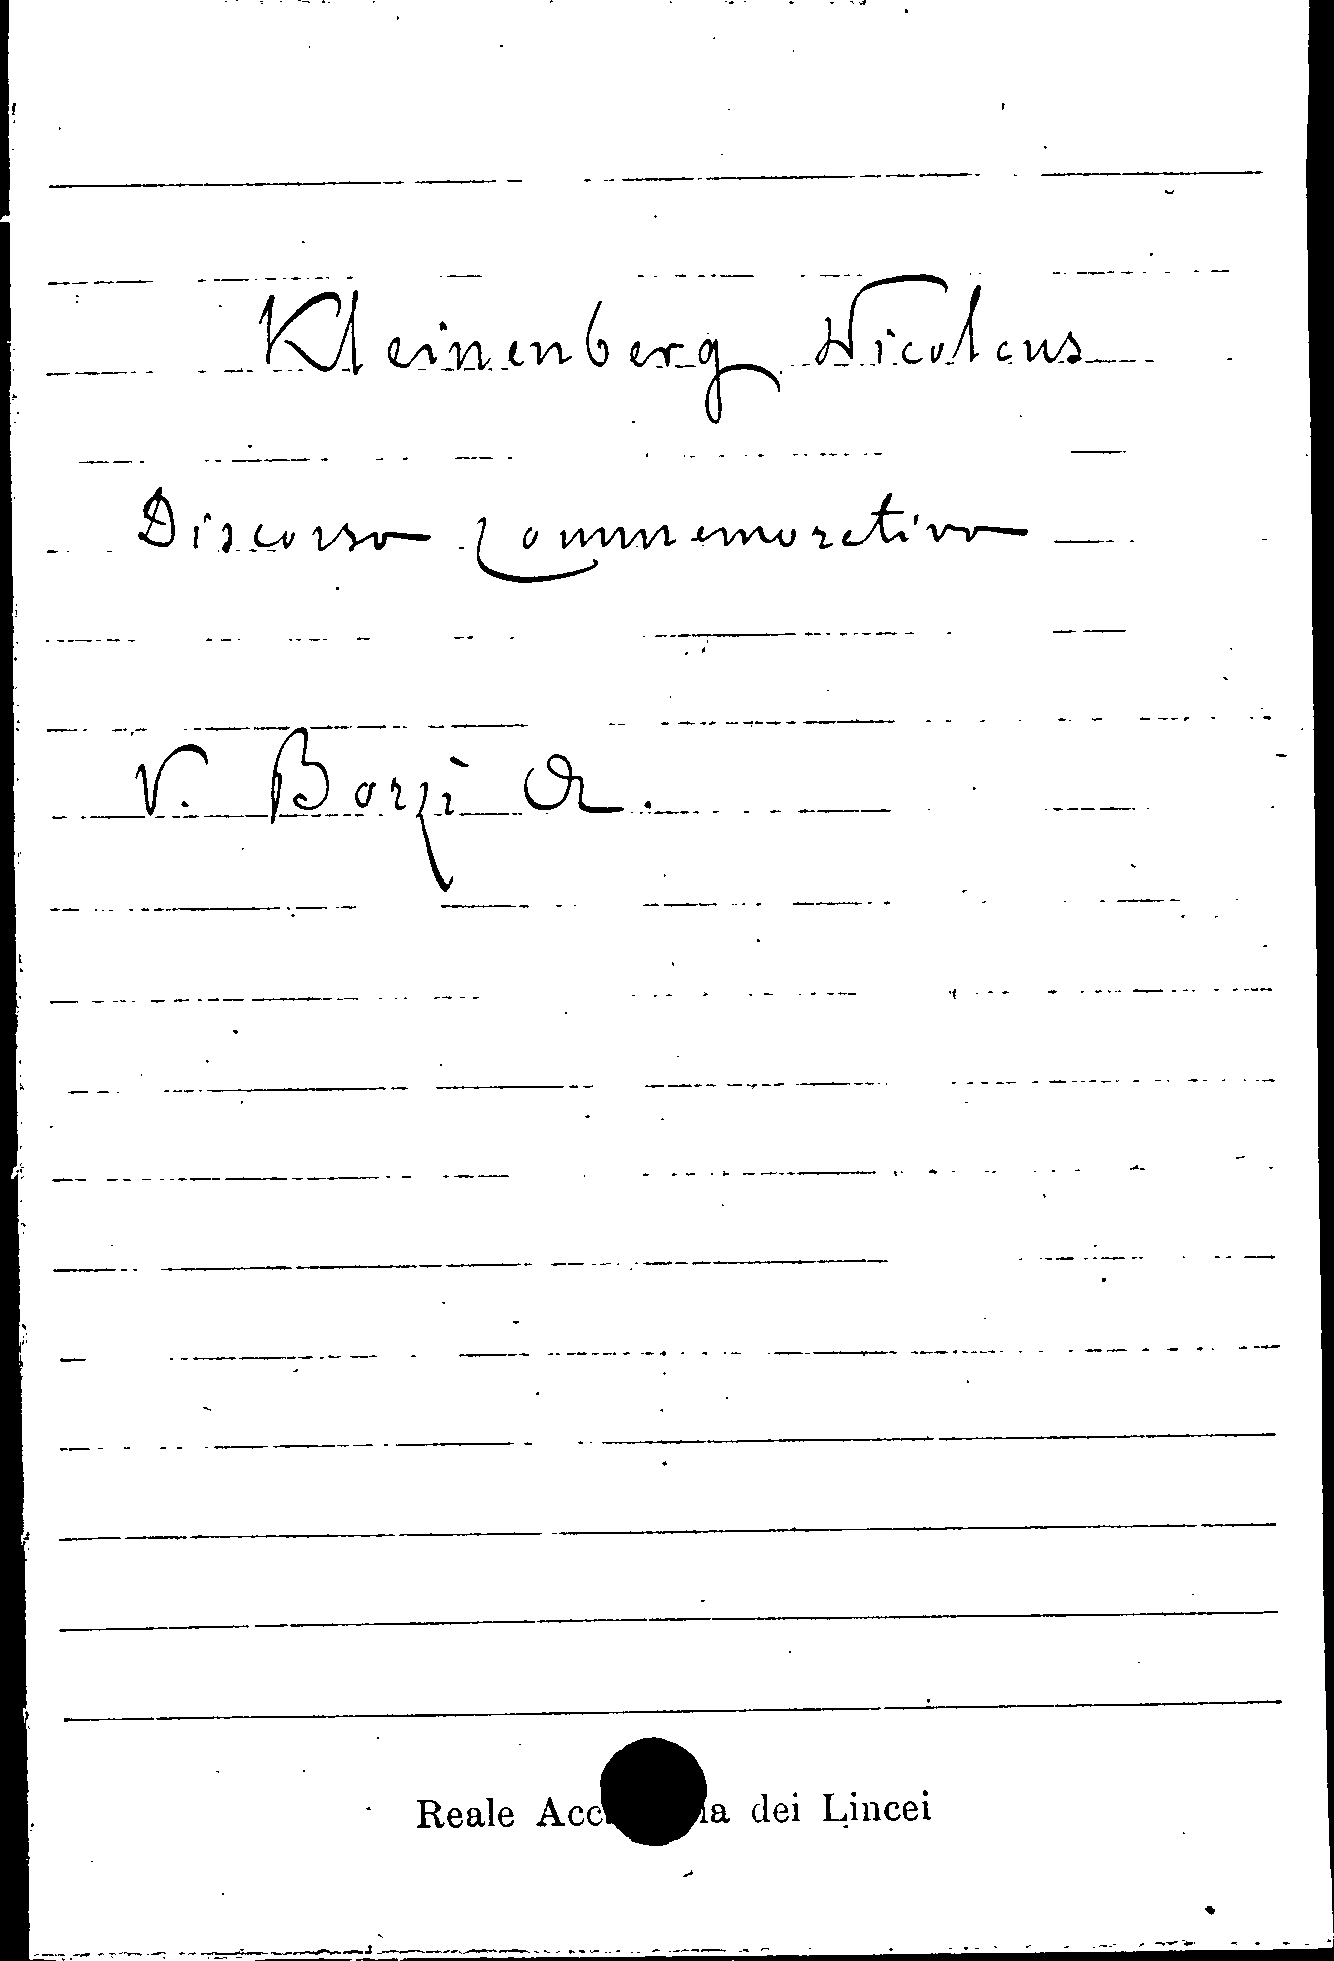 Kleinenberg Nicolaus
Discorso commemorativo
V. Borzì A.
Reale Acc ia dei Lincei